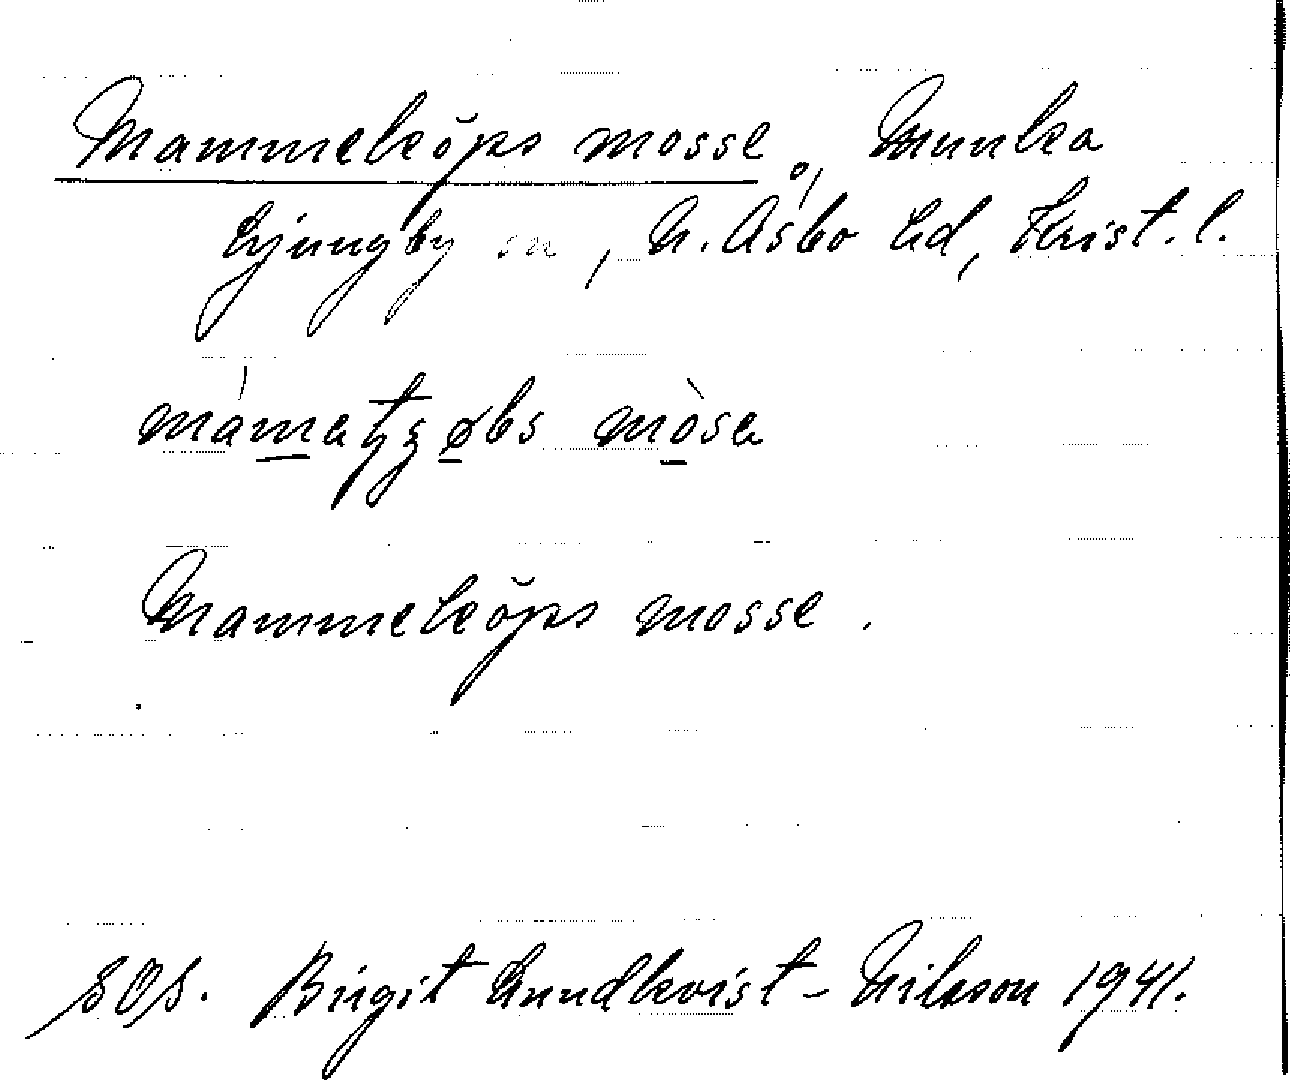 Mammeköps mosse, Munka
Ljungby sn, N. Åsbo hd, Krist. l.
Mammeköps mosse.
SOS. Birgit Lundkvist-Nilsson 1941.